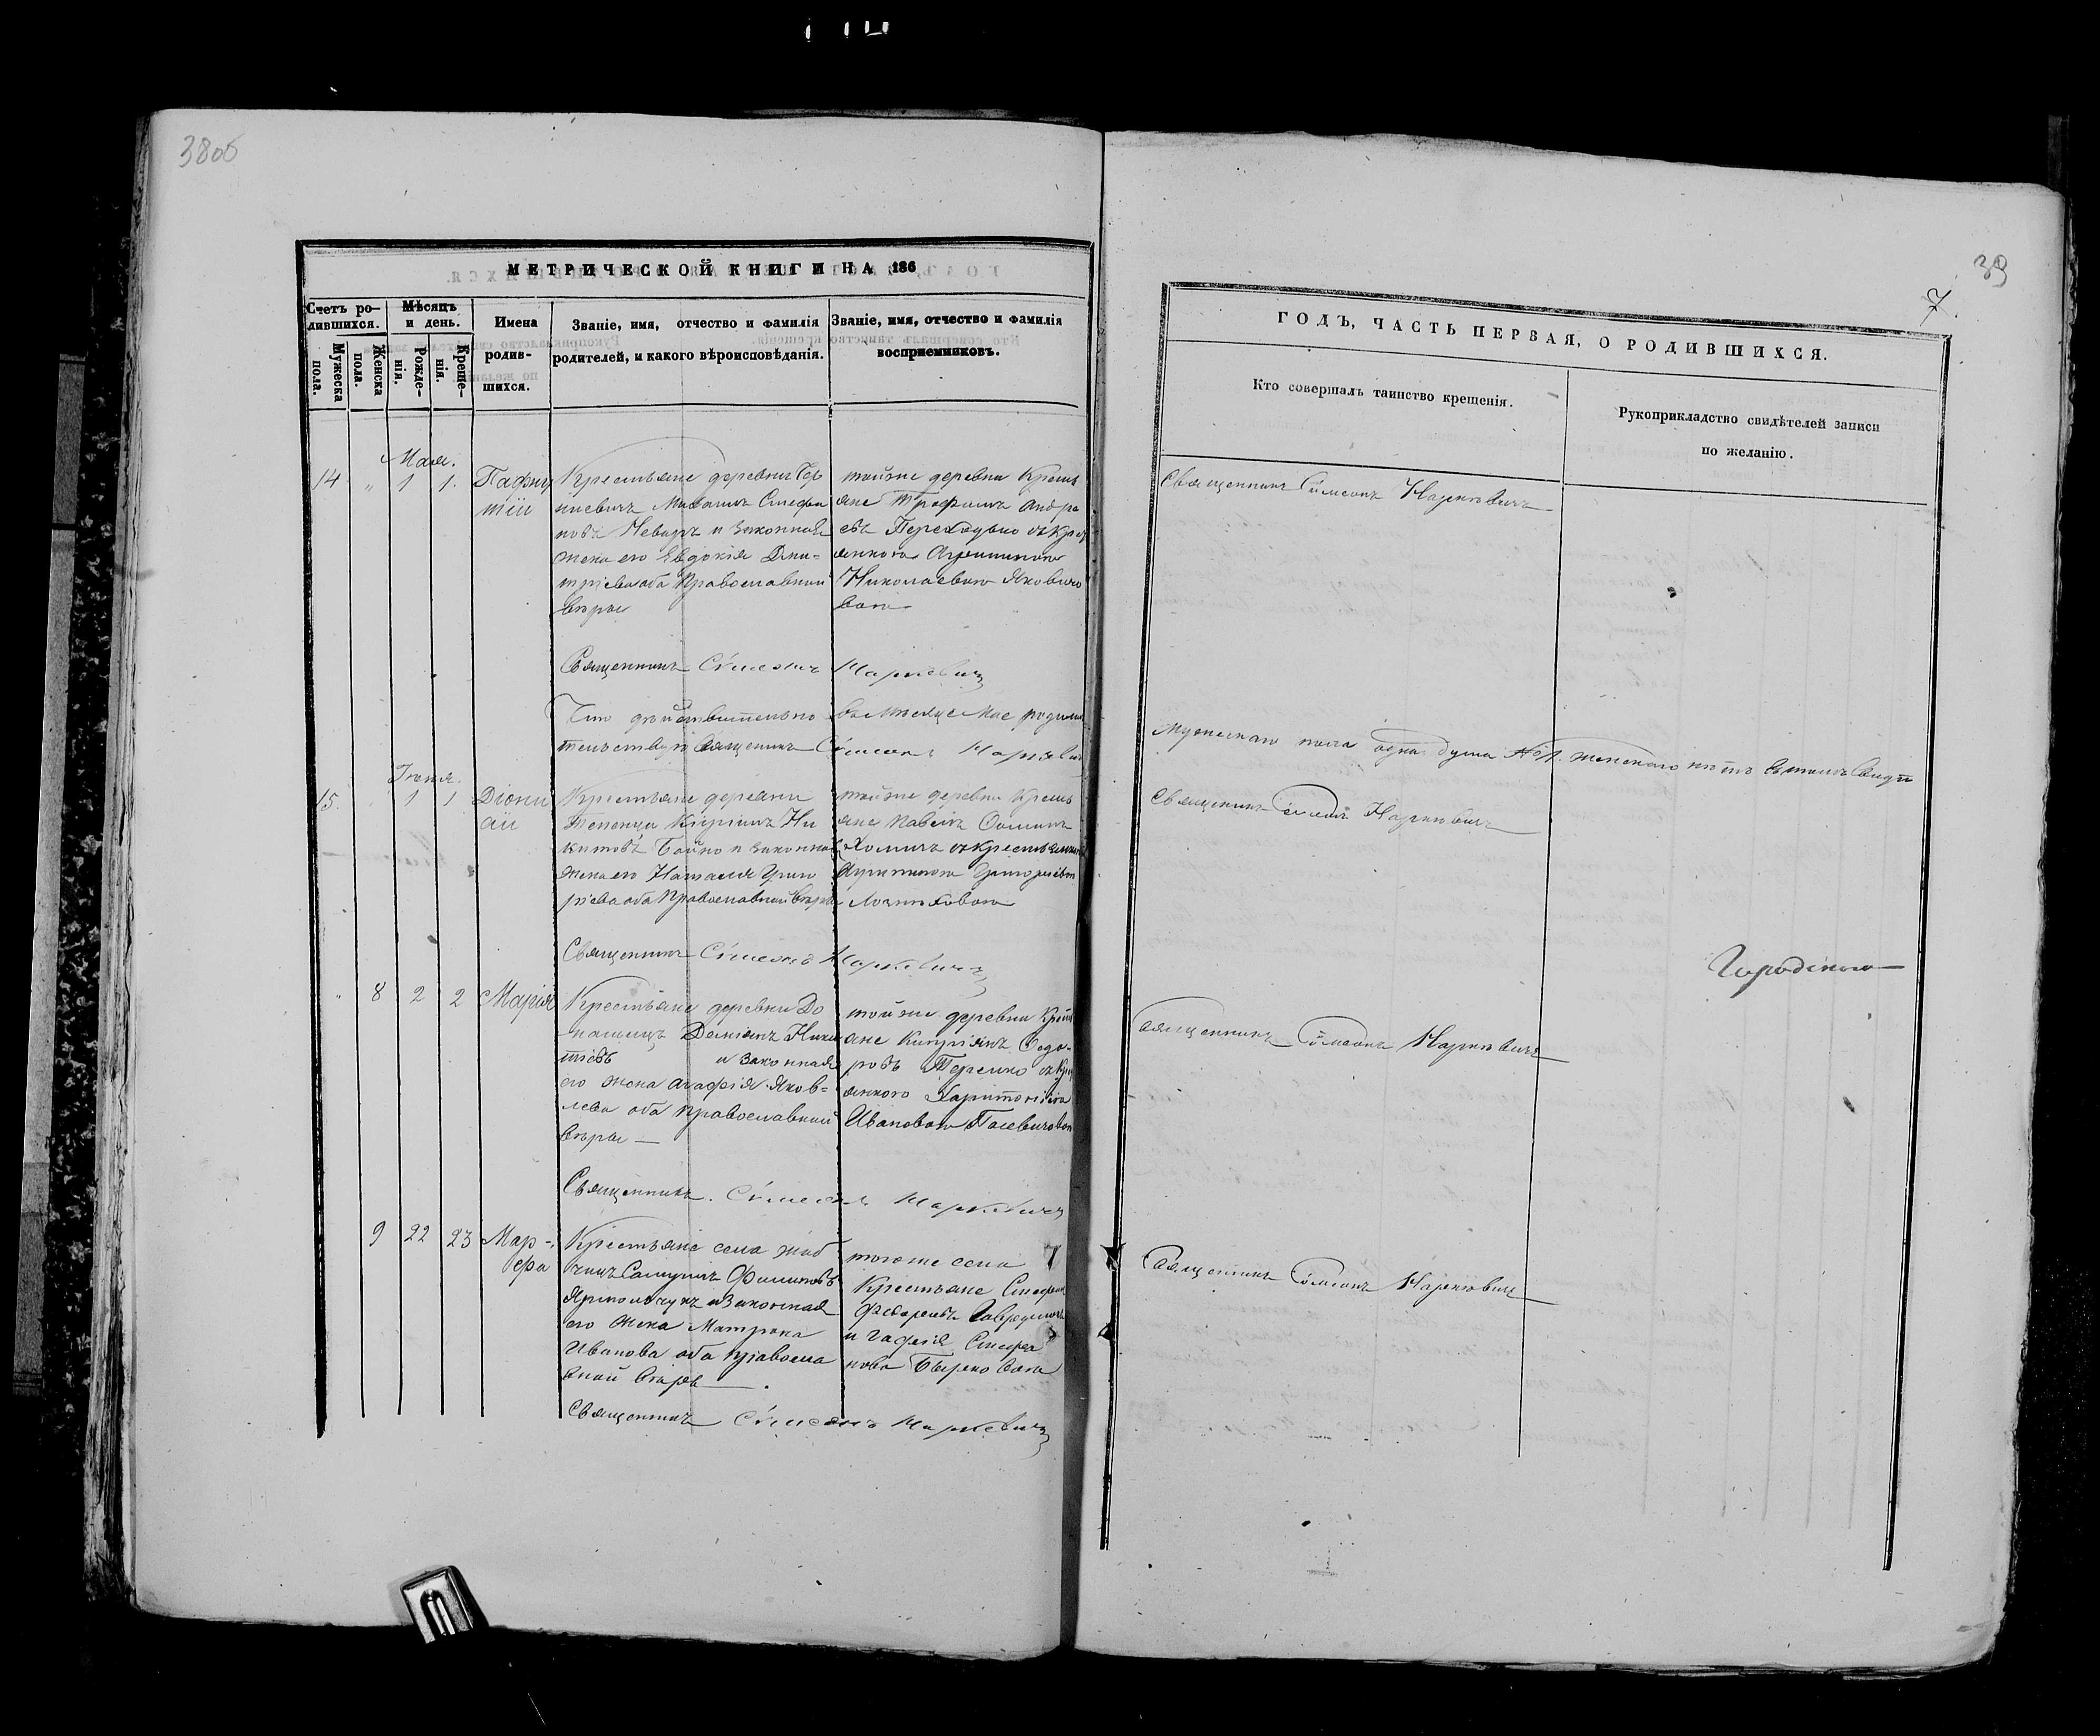 38об
МЕТРИЧЕСКОЙ КНИГИ НА 186
Счетъ ро-
дившихся.
Мужеска
пола.
Женска
пола.
Мѣсяцъ
и день.
Рожде-
нія.
Креще-
нія.
Имена
родив-
шихся.
Званіе, имя, отчество и фамилія
родителей, и какого вѣроисповѣданія.
Званіе, имя, отчество и фамилія
восприемниковъ.
Мая.
14 " 1 1.
Пафну
тій
Крестьяне деревни
Стефа
новъ Невидъ и законная
жена его Евдокія Дми-
тріева оба Православной
вѣры
тойже деревни Кресть
яне Трофимъ Андре
евъ
Николаевою Якович
вою
Священникъ Сѵмеонъ Маркевичъ
Что дѣйствительно въ Мѣсяце Мае родил
тельствую Священникъ Сѵмеонъ Маркевич
Іюня.
15. 1 1
Діони
сій
Крестьяне деревни
Тепенца Кипріянъ Ни
китовъ Бойко и законная
жена его Наталія Григо
ріева оба Православной вѣры
тойже деревни Кресть
яне Павелъ
Хомичъ съ Крестьянкою
Григоріевою
Священникъ Сѵмеонъ Маркевичъ
" 8 2 2
Марія
Крестьяне деревни До
Даміянъ Ники
и законная
его жена Агафія Яков-
лева оба православной
вѣры —
тойже деревни Кресть
яне Кипріянъ Ѳедо-
ровъ
янкою Харитоніею
Ивановою
Священникъ. Сѵмеонъ Маркевичъ
9 22 23
Мар-
ѳра
Крестьяне села Жаб
чичъ Самуилъ Филиповъ
Ярмольчукъ и Законная
его жена Матрона
Иванова оба правосла
вной вѣры
того же села
Крестьяне Стефан
и Агафія Стефа
нова
Священникъ Сѵмеонъ Маркевичъ
39
7
ГОДЪ, ЧАСТЬ ПЕРВАЯ, О РОДИВШИХСЯ.
Кто совершалъ таинство крещенія.
Рукоприкладство свидѣтелей записи
по желанію.
Священникъ Сѵмеонъ Маркевичъ
Мужескаго пола одна душа женскаго нѣтъ въ томъ свидѣ
Священникъ Сѵмеонъ Маркевичъ
Священникъ Сѵмеонъ Маркевичъ
Священникъ Сѵмеонъ Маркевичъ